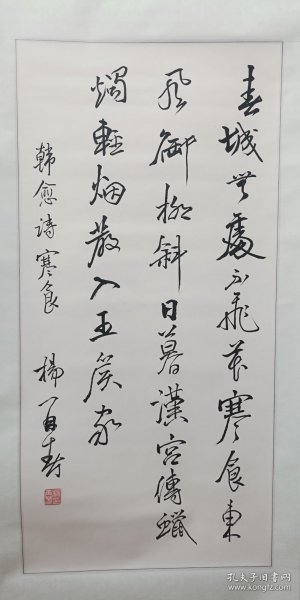 春城無處不飛花寒食東
風御柳斜日暮漢宮傳蠟
燭輕烟散入五侯家
韓愈詩寒食
楊百壽
孔夫子旧书网